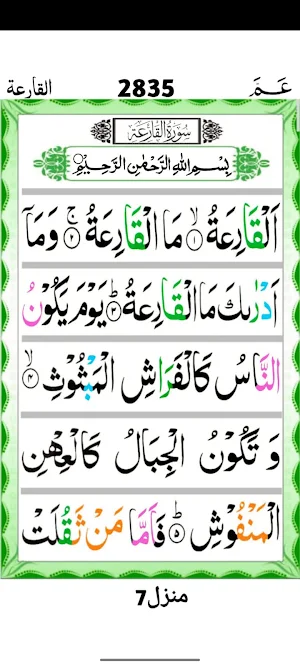 القارعة 2835 عَمَّ
سُوْرَةُ الْقَارِعَةِ
بِسْمِ اللهِ الرَّحْمٰنِ الرَّحِيْمِ
اَلْقَارِعَةُ ۙ۝١ مَا الْقَارِعَةُ ۚ۝٢ وَمَاۤ
اَدْرٰىكَ مَا الْقَارِعَةُ ؕ۝٣ يَوْمَ يَكُوْنُ
النَّاسُ كَالْفَرَاشِ الْمَبْثُوْثِ ۙ۝٤
وَ تَكُوْنُ الْجِبَالُ كَالْعِهْنِ
الْمَنْفُوْشِ ؕ۝٥ فَاَمَّا مَنْ ثَقُلَتْ
منزل7